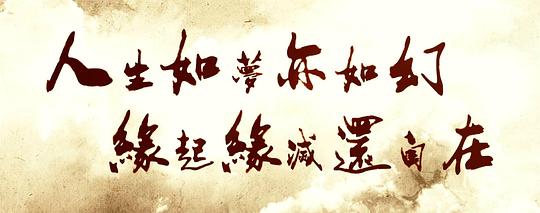 人生如夢亦如幻
緣起緣滅還自在